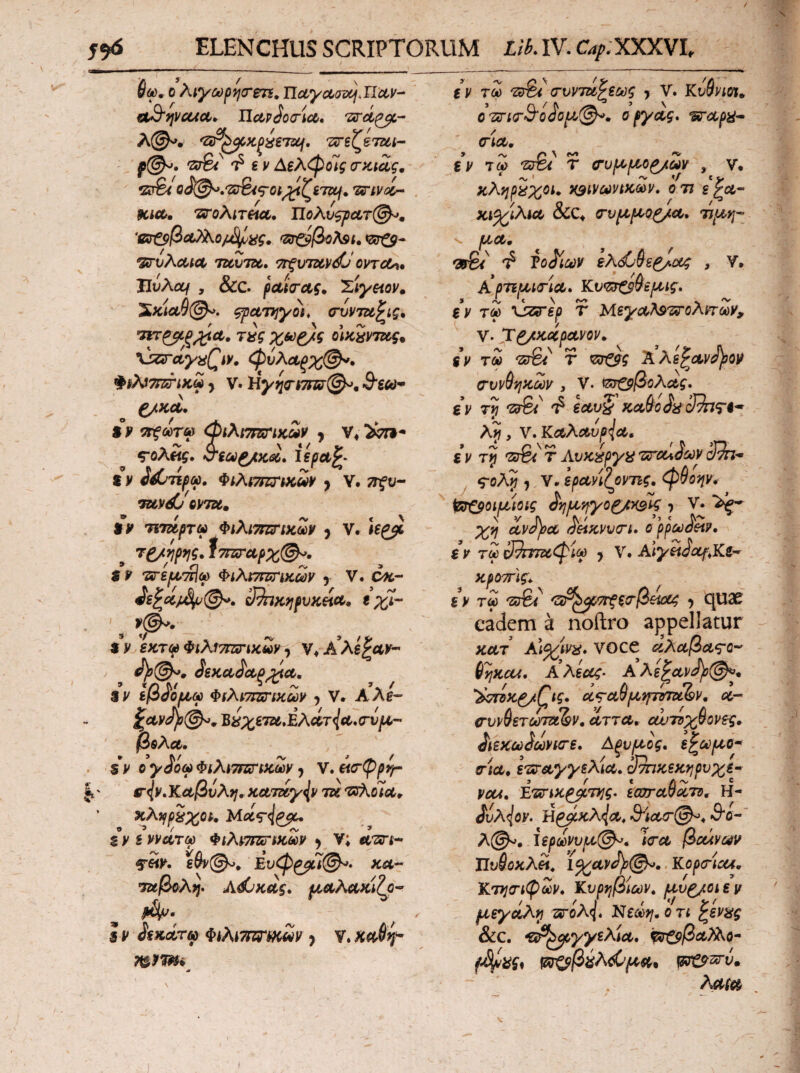 596 ELENCHUS SCRIPTORUM Lib. IV. Cap. XXXVI.
θω. ὀλιγωρήσετε. Παγασαί. Παν-
αθηναια. Πανδοσία. πάρα-
λος. παρακρούεται. πεζέται-
ρος. περὶ τῆς ἐν Δελφοῖς σκιᾶς.
στοιχίζεται. πινά-
κια. πολιτεία. Πολύστρατος.
προβαλλομένους. προβολαί. προ-
πύλαια ταῦτα. πρυτανεύοντα.
Πύλαι, &c. ῥαΐσας. Σίγειον.
Σκίαθος. στρατηγοί. σύνταξις.
τετραρχία. τὰς χωρὶς οἰκοῦντας.
ὑπαγουσιν. φύλαρχος.
Φιλιππικῷ, V. Ηγήσιππος. θεω-
ρικά.
ἐν πρώτῳ Φιλιππικῶν, V. ἀπο-
στολεῖς. θεωρικά. ἱέραξ.
ἐν δευτέρῳ. Φιλιππικῶν, V. πρυ-
τανεύοντα.
ἐν τετάρτῳ Φιλιππικῶν, V. ἱερὰ
τριήρης. ἵππαρχος.
ἐν πέμπτῳ Φιλιππικῶν, V. ἐκ-
δεξάμενος. ἐπικηρυκεία. ἐχῖ-
νος.
ἐν ἕκτῳ Φιλιππικῶν, V. Αλέξαν-
δρος. δεκαδαρχία.
ἐν ἑβδόμῳ Φιλιππικῶν, V. Αλέ-
ξανδρος. Βούχετα. Ελάτεια. σύμ-
βολα.
ἐν ὀγδόῳ Φιλιππικῶν, V. εἰσφρή-
σειν. Καβύλη. κατάγειν τὰ πλοῖα.
κληροῦχοι. Μάστειρα.
ἐν ἐννάτῳ Φιλιππικῶν, V. ἀπι-
στεῖν. ἔθνος. Εὐφραῖος. κα-
ταβολή. Λευκάς. μαλακιζο-
μεν.
ἐν δεκάτῳ Φιλιππικῶν, V. καθή-
κοντα.
ἐν τῷ περὶ συντάξεως, V. Κύθνιοι.
ὀπισθόδομος. ὀργάς. παρου-
σία.
ἐν τῷ περὶ τ συμμοριῶν, V.
κληροῦχοι. κοινωνικῶν. ὅτι ἑξα-
κισχίλια &c. συμμορία. τίμη-
μα.
περὶ τῆς Ροδίων ἐλευθερίας, V.
Αρτεμισία. Κυπροθέμις.
ἐν τῷ ὑπὲρ τ Μεγαλοπολιτῶν,
V. Τρικάρανον.
ἐν τῷ περὶ τ πρὸς Αλέξανδρον
συνθηκῶν, V. προβολάς.
ἐν τῇ περὶ τῆς ἑαυτοῦ καθόδου ἐπιστο-
λῇ, V. Καλαυρία.
ἐν τῇ περὶ τ Λυκούργου παίδων ἐπι-
στολῇ, V. ἐρανίζοντες. Φθόην.
προοιμίοις δημηγορικοῖς, V. ἀρ-
χὴ ἄνδρα δείκνυσι. ὀρρωδεῖν.
ἐν τῷ ἐπιταφίῳ, V. Αἰγεῖδαι. Κε-
κροπίς.
ἐν τῷ περὶ παραπρεσβείας, quæ
eadem à nostro appellatur
κατ' Αἰσχίνου. voce ἀλαβαστο-
θῆκαι. Αλέας. Αλέξανδρος.
ἀπόκρισις. ἀσταθμητότατον. ἀ-
συνθετώτατον. ἅττα. αὐτόχθονες.
διεκωδώνισε. Δρυμός. ἐξωμο-
σία. ἐπαγγελία. ἐπικεκηρυχέ-
ναι. Επικράτης. ἐσπαθᾶτο. Η-
δύλειον. Ηράκλεια. θίασος. θό-
λος. ἱερώνυμος. ἴσα βαίνων
Πυθοκλεῖ. Ισχανδρος. Κορσίαι.
Κτησιφῶν. Κυρηβίων. μύριοι ἐν
μεγάλῃ πόλει. Νέων. ὅτι ξένους
&c. παραγγελία. προβαλλο-
μένους. προβούλευμα. προπύ-
λαια